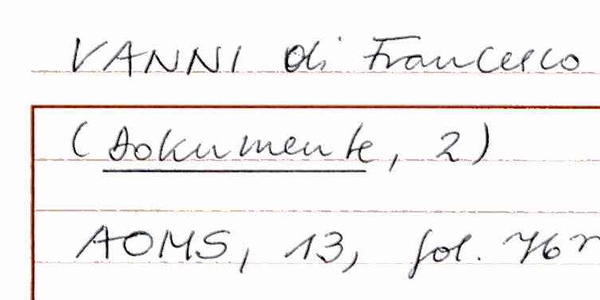 VANNI di Francesco
(Dokumente, 2)
AOMS, 13, fol. 76r